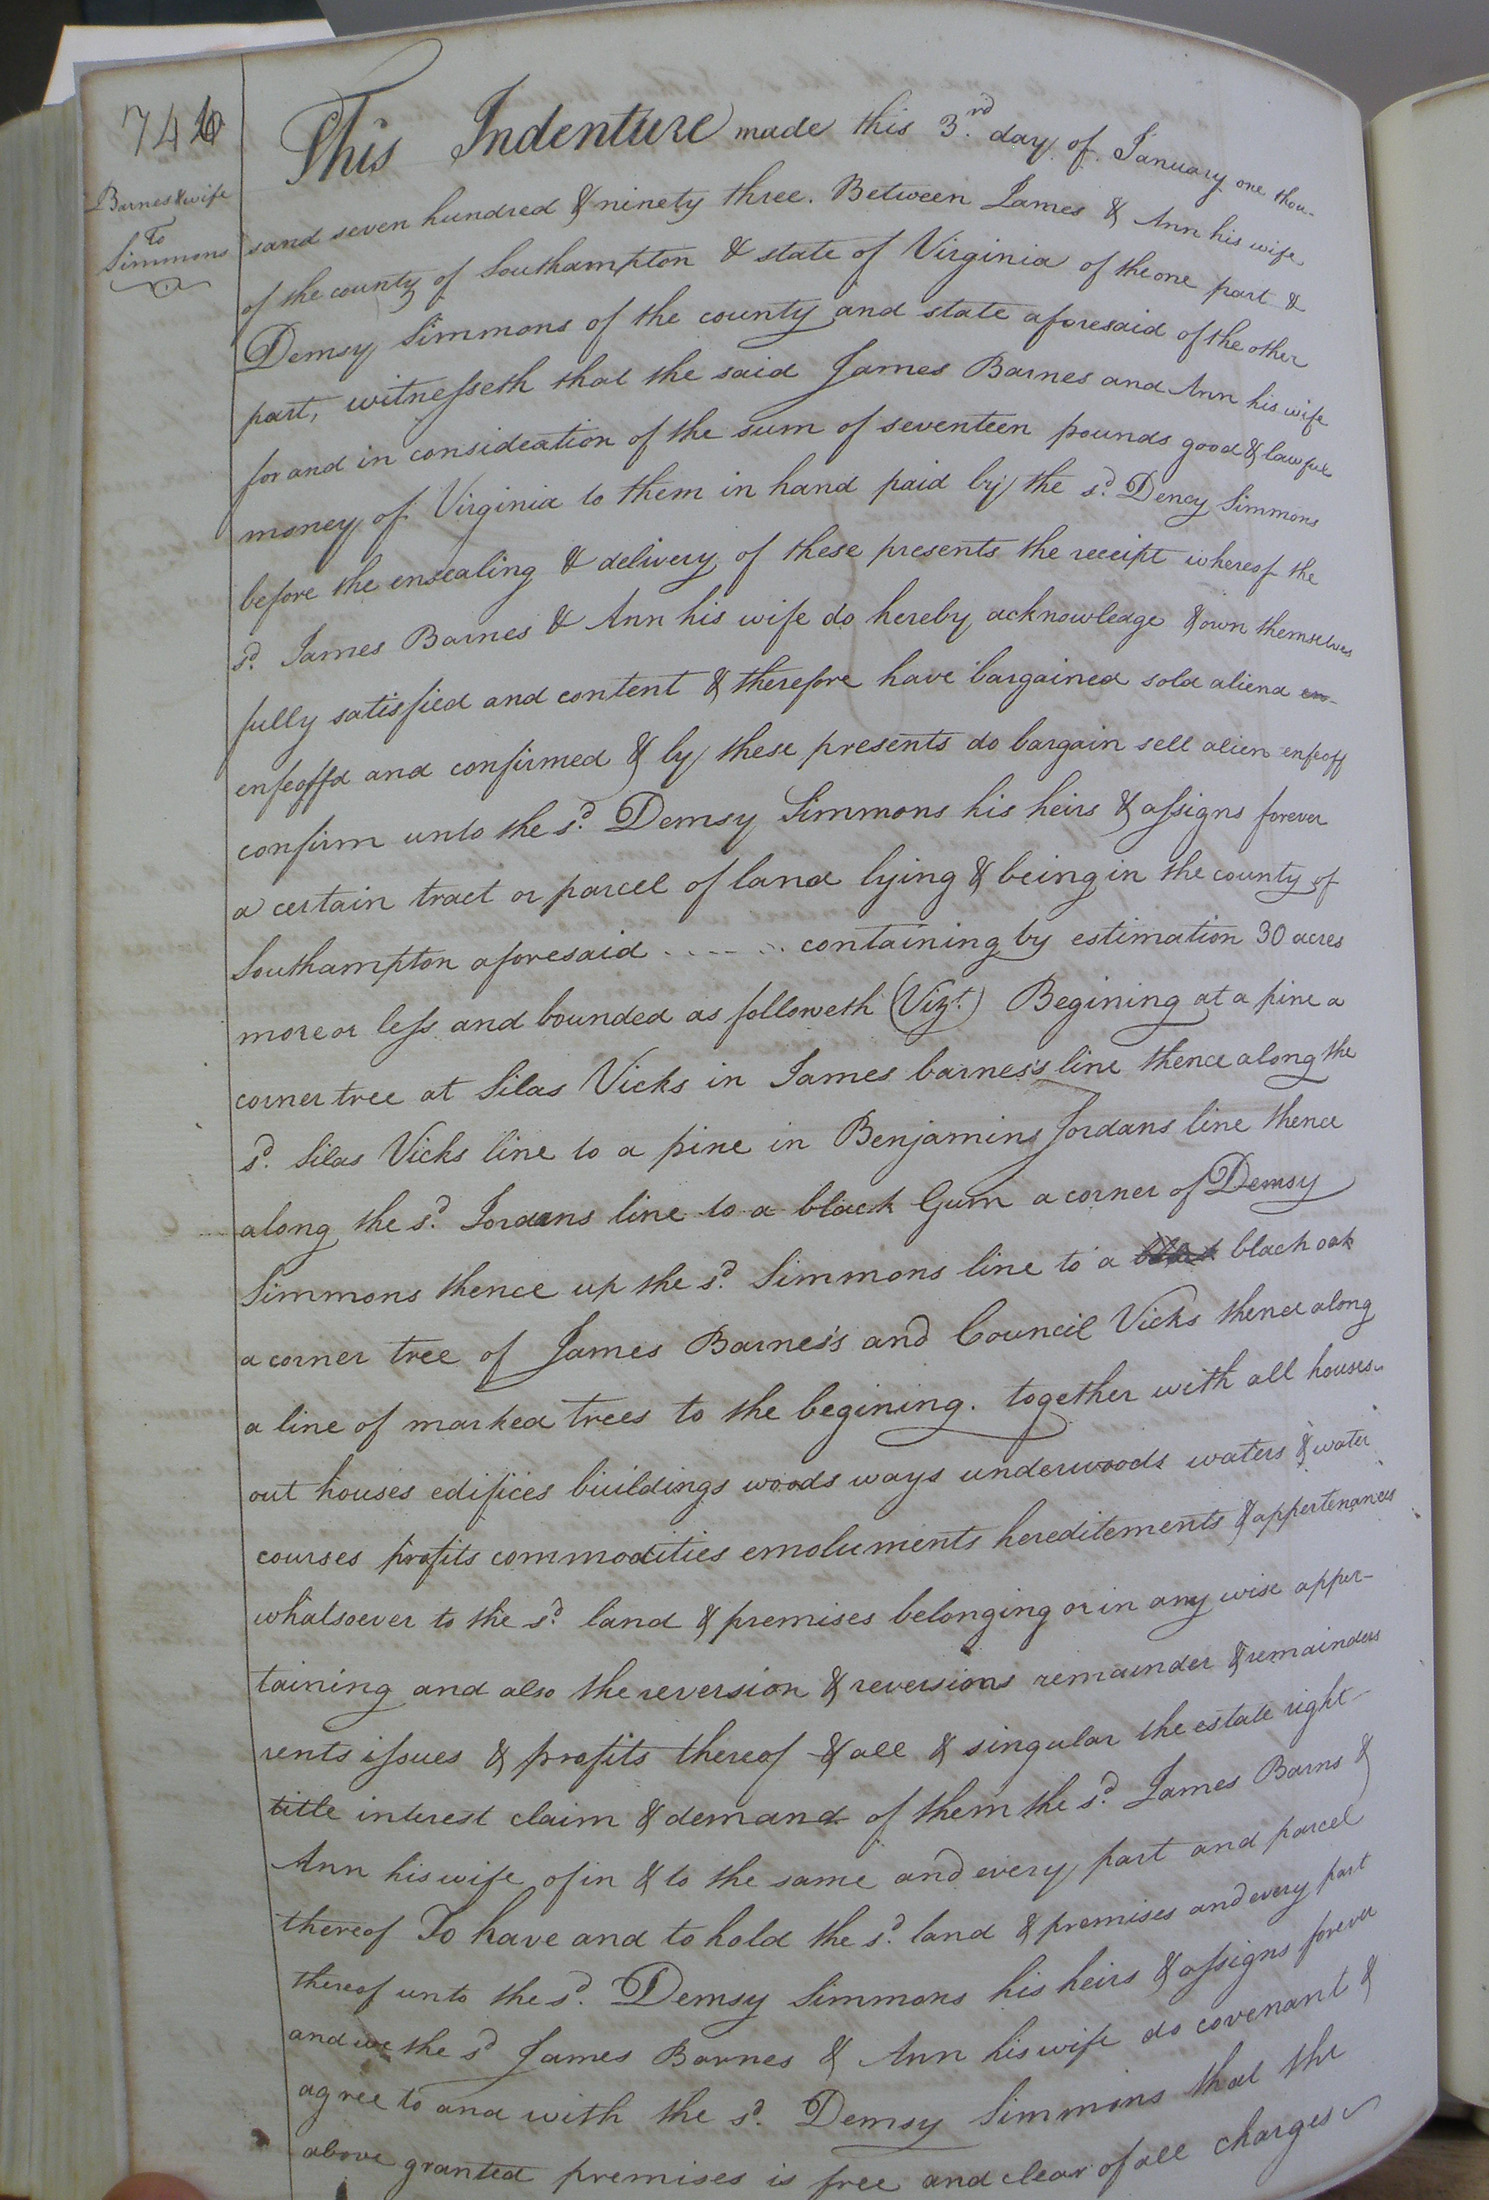 746
Barnes & wife
To
Simmons
This Indenture made this 3.rd day of January one thou-
sand seven hundred & ninety three. Between James & Ann his wife
of the county of Southampton & state of Virginia of the one part &
Demsy Simmons of the county and state aforesaid of the other
part, witnesseth that the said James Barnes and Ann his wife
for and in consideation of the sum of seventeen pounds good & lawful
money of Virginia to them in hand paid by the sd. Dency Simmons
before the ensealing & delivery of these presents the receipt whereof the
sd. James Barnes & Ann his wife do hereby acknowledge & own themselves
fully satisfied and content & therefore have bargained sold aliend en-
enfeoffd and confirmed & by these presents do bargain sell alien enfeoff
confirm unto the sd. Demsy Simmons his heirs & assigns forever
a certain tract or parcel of land lying & being in the county of
Southampton aforesaid - - - - - containing by estimation 30 acres
more or less and bounded as followeth (Vizt.) Begining at a pine a
corner tree at Silas Vicks in James barnes's line thence along the
sd. Silas Vicks line to a pine in Benjamins Jordans line thence
along the sd. Jordans line to a black Gum a corner of Demsy
Simmons thence up the sd. Simmons line to a black oak
a corner tree of James Barnes's and Council Vicks thence along
a line of marked trees to the begining. together with all houses
out houses edifices buildings woods ways underwoods waters & water
courses profits commodities emoluments hereditements & appertenances
whatsoever to the sd. land & premises belonging or in any wise apper-
taining and also the reversion & reversions remainder & remainders
rents issues & profits thereof & all & singular the estate right
title interest claim & demand of them the sd. James Barns &
Ann his wife of in & to the same and every part and parcel
thereof To have and to hold the sd. land & premises and every part
thereof unto the sd. Demsy Simmons his heirs & assigns forever
and we the sd James Barnes & Ann his wife do covenant &
agree to and with the sd. Demsy Simmons that the
above granted premises is free and clear of all charges